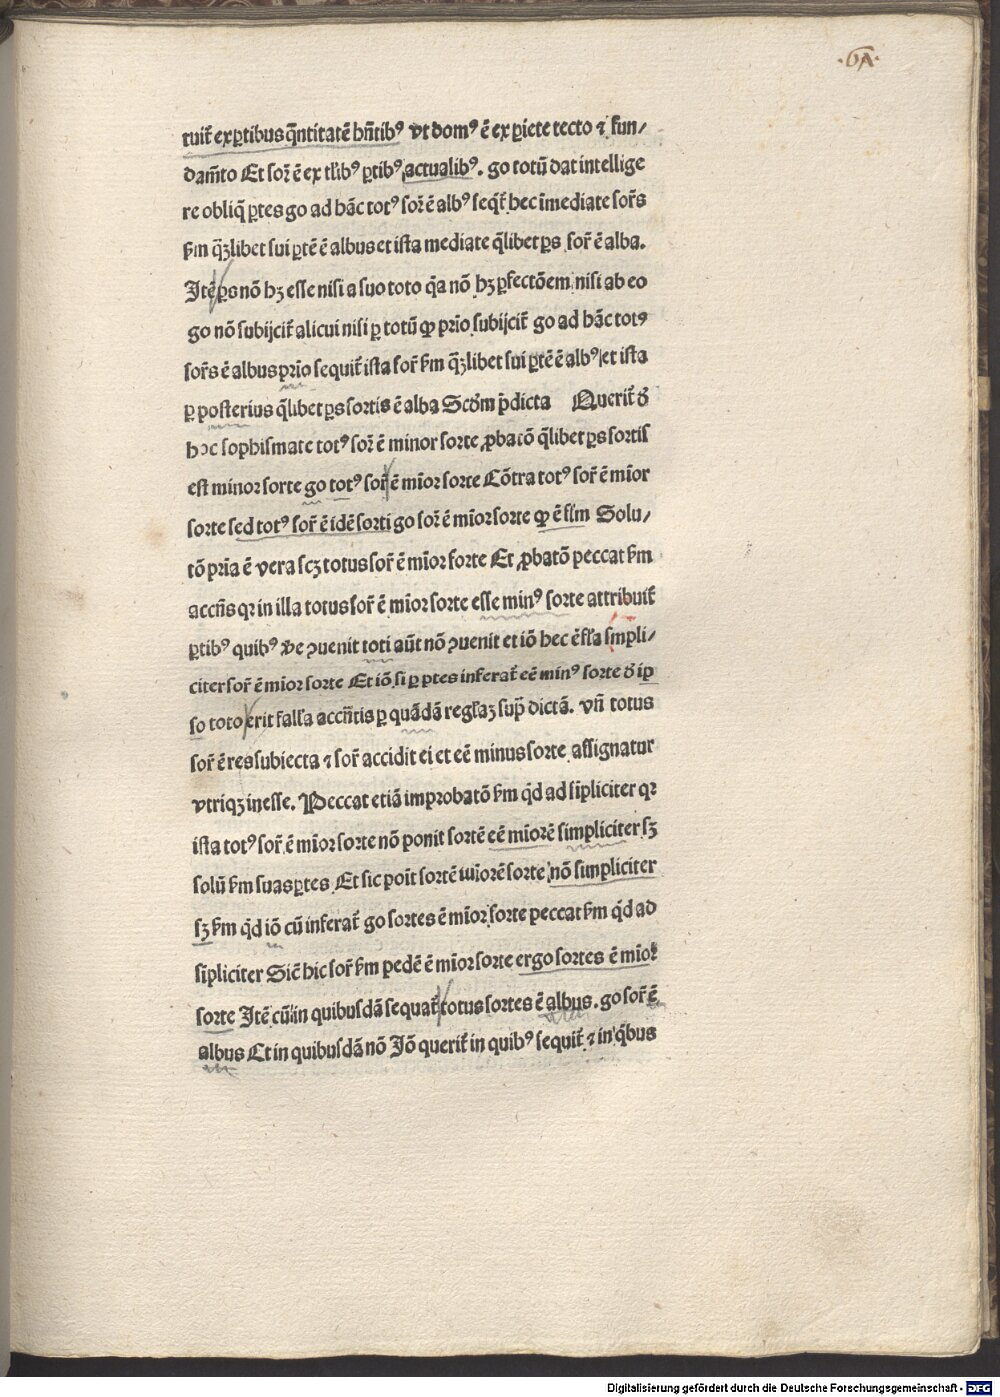 ·6A·
tuit᷑ exꝑtibus q̃ntitatē hñtibꝰ vt domꝰ ē ex ꝑiete tecto ⁊ fun/
dam̃to Et sor᷑ ē ex tl̃ibꝰ ꝑtibꝰ actualibꝰ. go totū dat intellige
re obliq̃ ꝑtes go ad hāc totꝰ sor᷑ ē albꝰ seqt᷑ hec īmediate sor᷑s
ẜm q̃ꝫlibet sui ꝑtē ē albus et ista mediate q̃libet ꝑs sor᷑ ē alba.
Itē ꝑs nō hꝫ esse nisi a suo toto q̃a nō hꝫ ꝑfectōem nisi ab eo
go nō subijcit᷑ alicui nisi ꝑ totū ꝙ prīo subijcit᷑ go ad hāc totꝰ
sor᷑s ē albus prīo sequit᷑ ista sor᷑ ẜm q̃ꝫlibet sui ꝑtē ē albꝰ et ista
ꝑ posterius q̃libet ꝑs sortis ē alba Scd̃m p̃dicta Querit᷑ d̾
hoc sophismate totꝰ sor᷑ ē minor sorte ꝓbatō q̃libet ꝑs sortis
est minor sorte go totꝰ sor᷑ ē mīor sorte Cōtra totꝰ sor᷑ ē mīor
sorte sed totꝰ sor᷑ ē idē sorti go sor᷑ ē mīor sorte ꝙ ē fl̃m Solu/
tō prīa ē vera scꝫ totus sor᷑ ē mīor sorte Et ꝓbatō peccat ẜm
accn̄s qꝛ in illa totus sor᷑ ē mīor sorte esse minꝰ sorte attribuit᷑
ꝑtibꝰ quibꝰ d̾e ꝯuenit toti aūt nō ꝯuenit et iō hec ē fl̃a smpli/
citer sor᷑ ē mīor sorte Et iō si ꝑ ꝑtes inferat᷑ eē minꝰ sorte d̾ ip̄
so toto erit falla accn̄tis ꝑ quādā regl̃aꝫ sup̃ dictā. vñ totus
sor᷑ ē res subiecta ⁊ sor᷑ accidit ei et eē minus sorte assignatur
vtriqꝫ inesse. Peccat etiā improbatō ẜm q̇d ad sīpliciter qꝛ
ista totꝰ sor᷑ ē mīor sorte nō ponit sortē eē mīorē simpliciter sꝫ
solū ẜm suas ꝑtes Et sic poīt sortē mīorē sorte nō simpliciter
sꝫ ẜm q̇d iō cū inferat᷑ go sortes ē mīor sorte peccat ẜm q̇d ad
sīpliciter Sic̄ hic sor᷑ ẜm pedē ē mīor sorte ergo sortes ē mīor
sorte Itē cū in quibusdā sequat᷑ totus sortes ē albus. go sor᷑ ē
albus Et in quibusdā nō Iō querit᷑ in quibꝰ sequit᷑ ⁊ in q̇bus
Digitalisierung gefördert durch die Deutsche Forschungsgemeinschaft - DFG